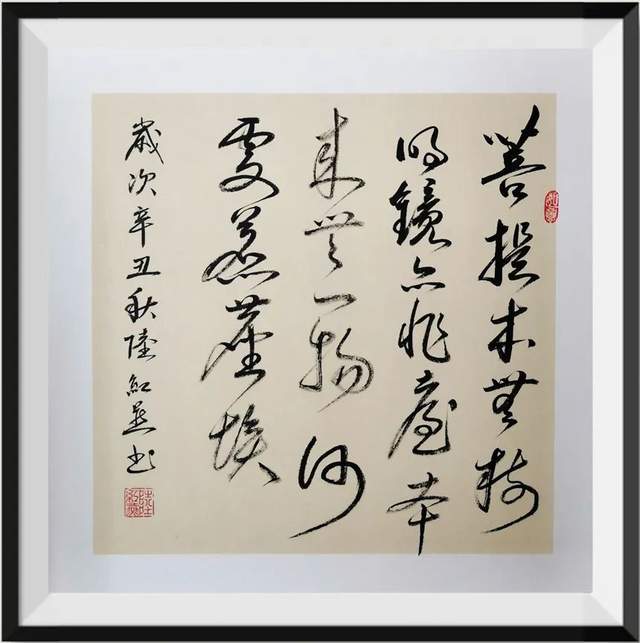 菩提本無樹
明鏡亦非臺本
来無一物何
處惹塵埃
歲次辛丑秋陸紅燕书